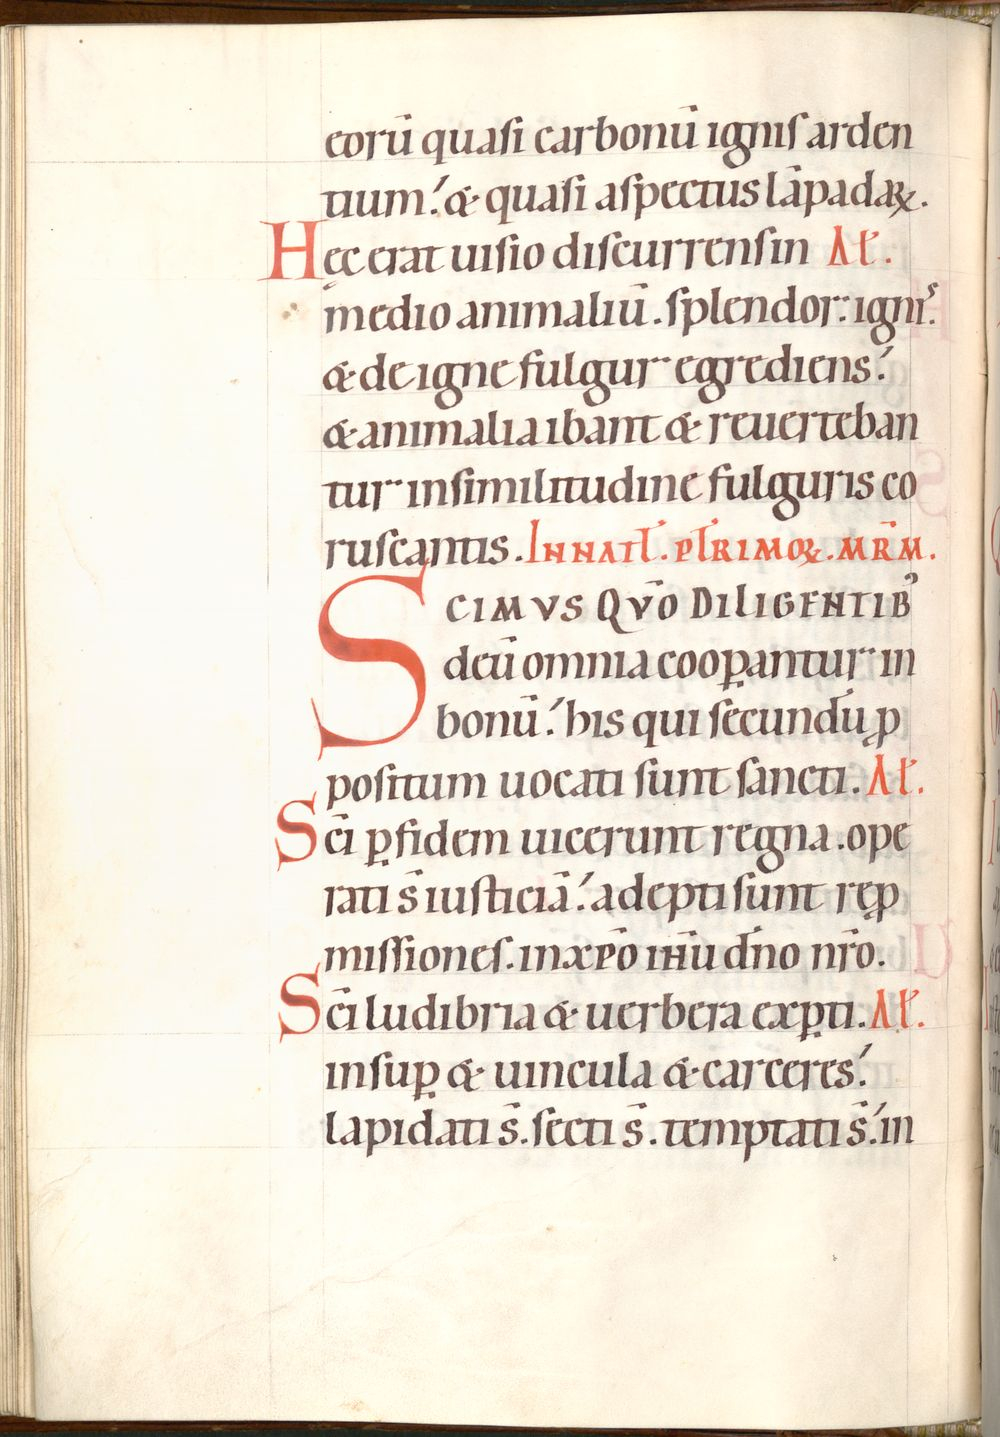 eorū quasi carbonū ignis arden
tium. & quasi aspectus lāpadaꝝ.
Hęc erat uisio discurrens in Al̄.
medio animaliū. splendor. ignis.
& de igne fulgur egrediens.
& animalia ibant & reuerteban
tur in similitudine fulguris co
ruscantis. IN NATL̄. PL̄RIMOꝝ. MR̄M.
SCIMVS QVŌ DILIGENTIBꝰ
deū omnia cooꝑantur in
bonū. his qui secundū ꝓ
positum uocati sunt sancti. Al̄.
Sc̄i ꝑ fidem uicerunt regna. ope
rati s̄ iusticiā. adepti sunt reꝓ
missiones. in xp̄o ih̄u dn̄o nr̄o.
Sc̄i ludibria & uerbera exꝑti. Al̄.
insuꝑ & uincula & carceres.
lapidati s̄. secti s̄. temptati s̄. in